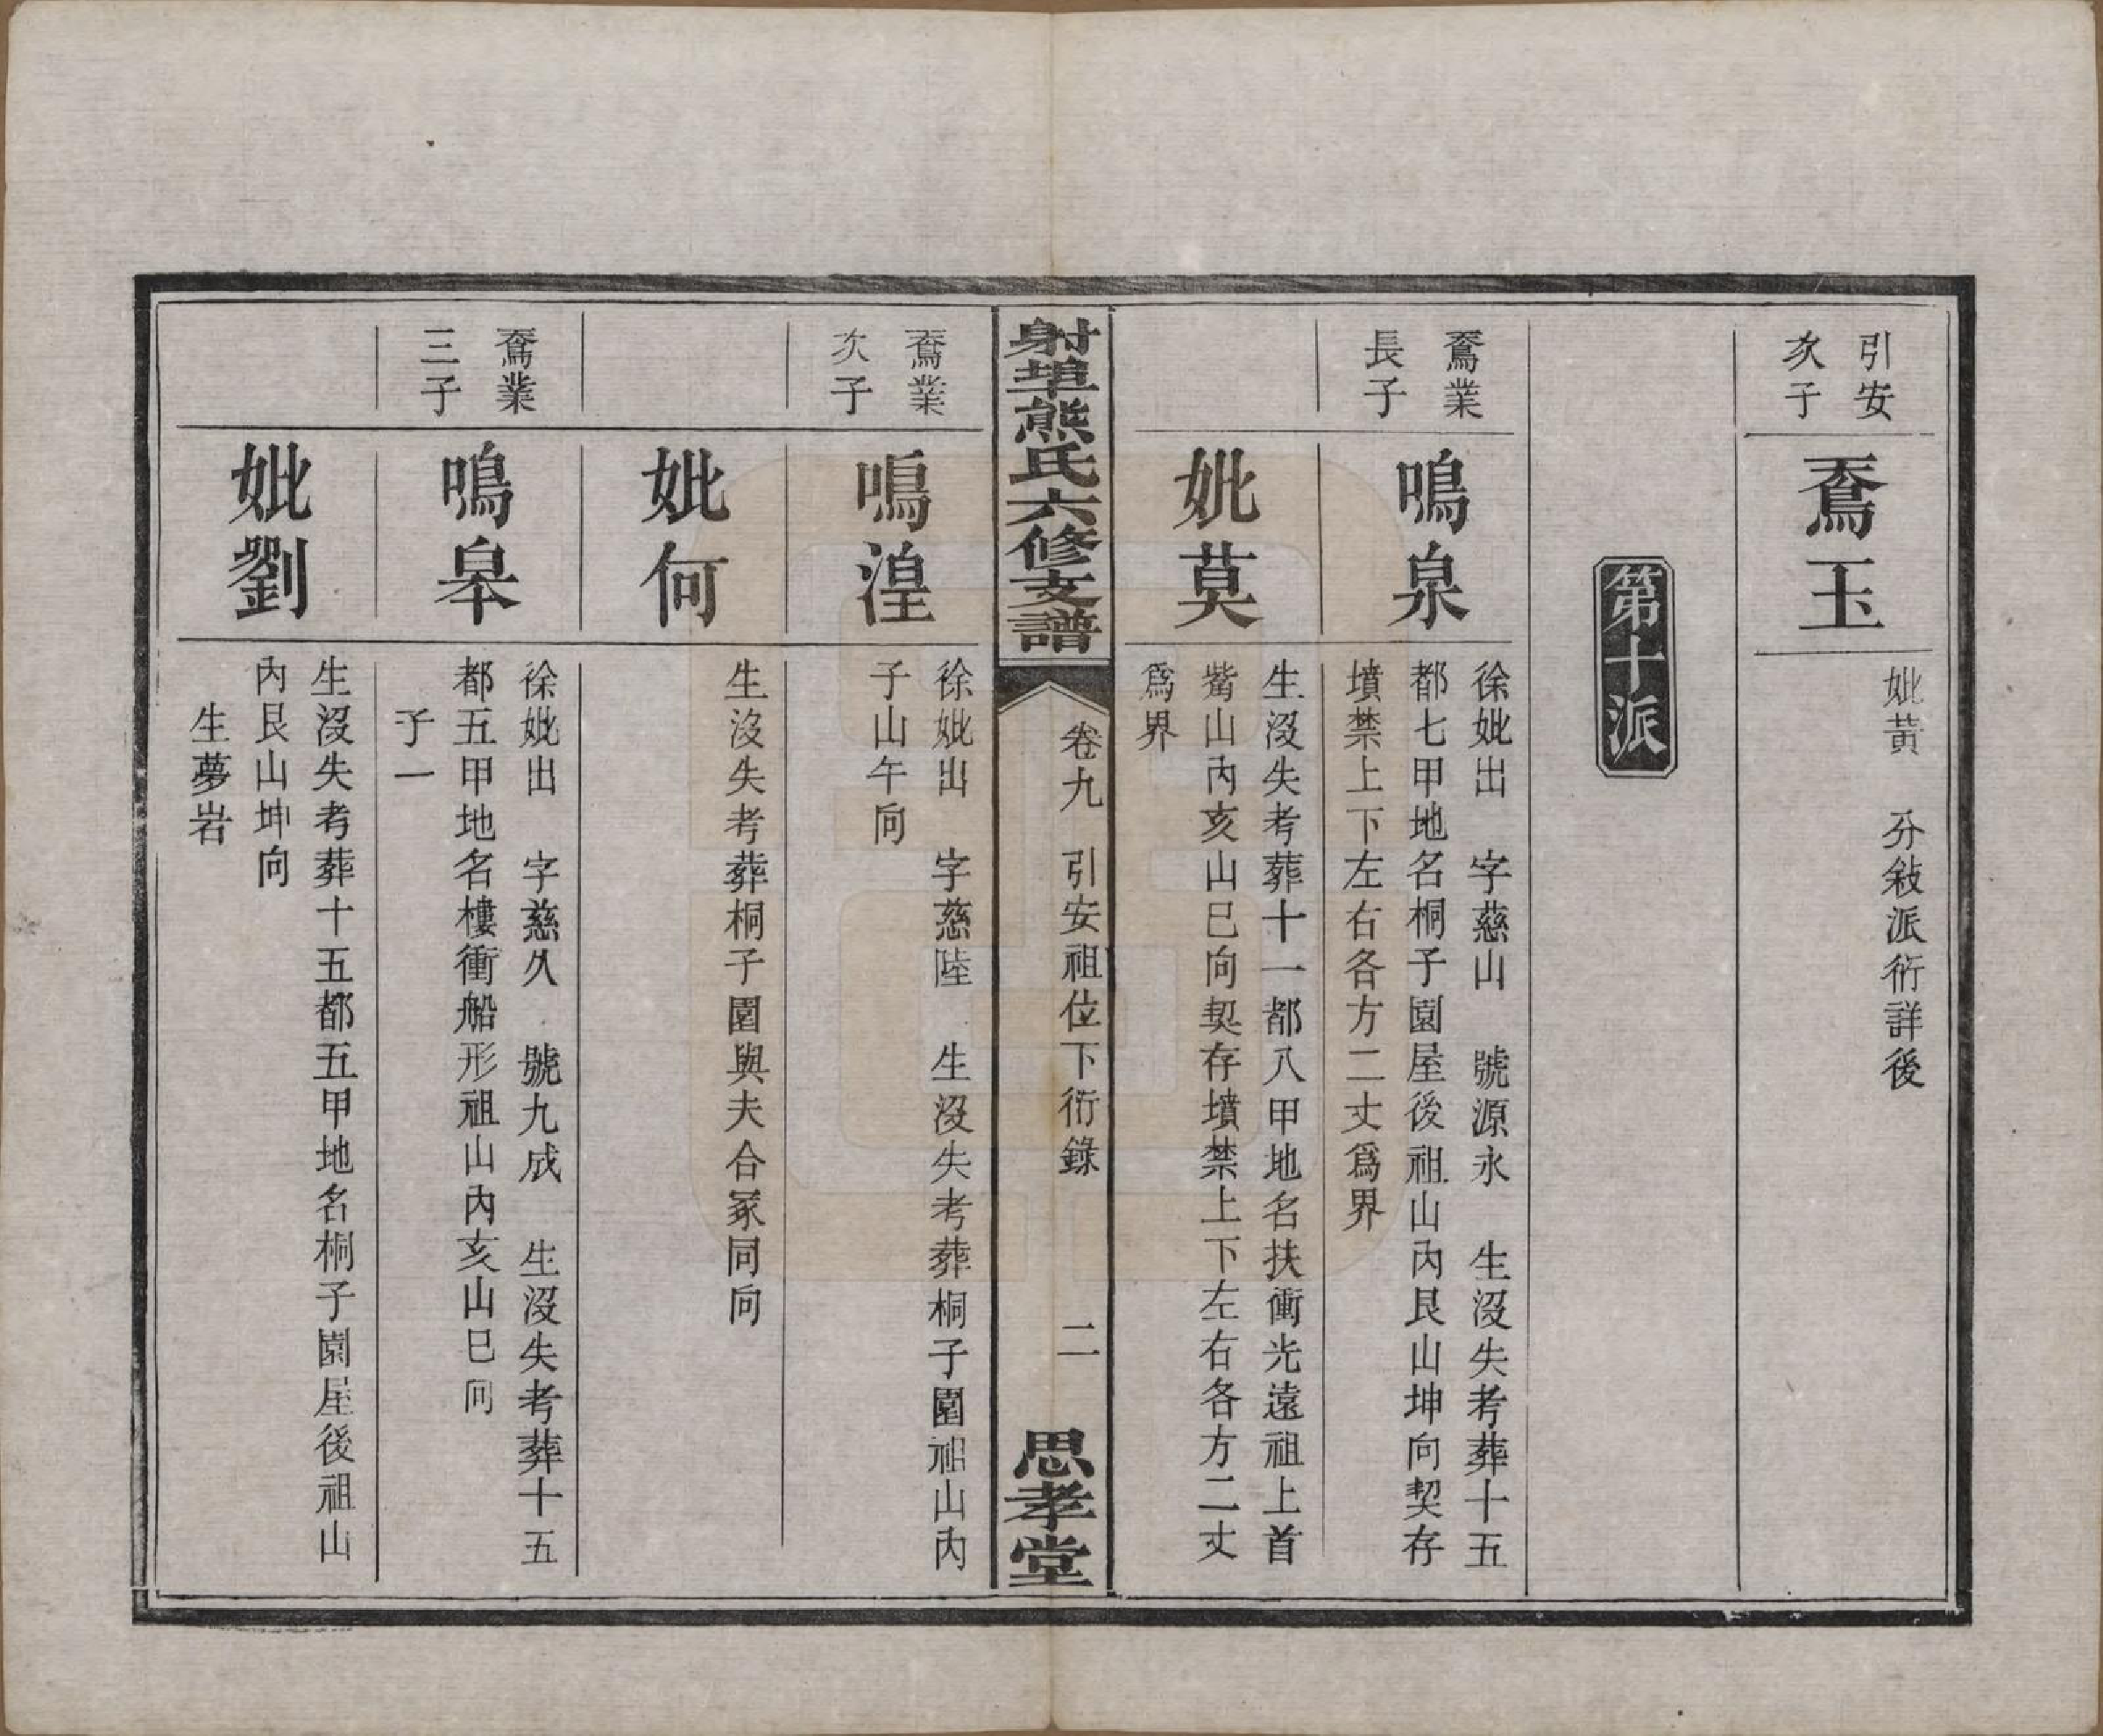 引安
次子
鴌玉
妣黃　分敍派衍詳後
第十派
鴌業
長子
鳴泉
徐妣出　字慈山　號源永　生沒失考葬十五
都七甲地名桐子園屋後祖山內艮山坤向契存
墳禁上下左右各方二丈爲界
妣莫
生沒失考葬十一都八甲地名扶衝光遠祖上首
觜山內亥山巳向契存墳禁上下左右各方二丈
爲界
射埠熊氏六修支譜
卷九　引安祖位下衍錄　二
思孝堂
鴌業
次子
鳴湟
徐妣出　字慈陸　生沒失考葬桐子園祖山內
子山午向
妣何
生沒失考葬桐子園與夫合冢同向
鴌業
三子
鳴皋
徐妣出　字慈久　號九成　生沒失考葬十五
都五甲地名樓衝船形祖山內亥山巳向
子一
妣劉
生沒失考葬十五都五甲地名桐子園屋後祖山
內艮山坤向
生夢岩